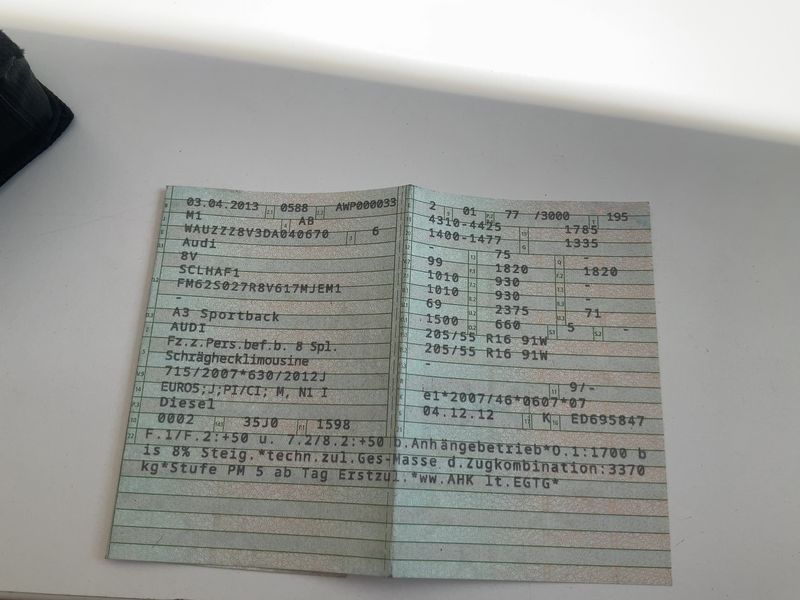 03.04.2013 0588 AWP000033
M1 AB
WAUZZZ8V3DA040670 6
Audi
8V
SCLHAF1
FM62S027R8V617MJEM1
-
A3 Sportback
AUDI
Fz.z.Pers.bef.b. 8 Spl.
Schräghecklimousine
715/2007*630/2012J
EURO5;J;PI/CI; M, N1 I
Diesel
0002 35J0 1598
2 01 77 /3000 195
4310-4425 1785
1400-1477 1335
- 75 -
99 1820 1820
1010 930 -
1010 930 -
69 2375 71
1500 660 5 -
205/55 R16 91W
205/55 R16 91W
-
9/-
e1*2007/46*0607*07
04.12.12 K ED695847
F.1/F.2:+50 u. 7.2/8.2:+50 b.Anhängebetrieb*O.1:1700 b
is 8% Steig.*techn.zul.Ges-Masse d.Zugkombination:3370
kg*Stufe PM 5 ab Tag Erstzul.*ww.AHK lt.EGTG*